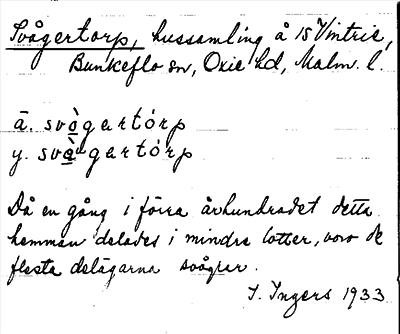 Svågertorp, hussamling å 15 Vintrie,
Bunkeflo sn, Oxie hd, Malm. l.
ä. svȯ̱̀gartórp
y. svà̱ᵘgartórp
Då en gång i förra århundradet detta
hemman delades i mindre lotter, voro de
flesta delägarna svågrar.
I. Ingers 1933